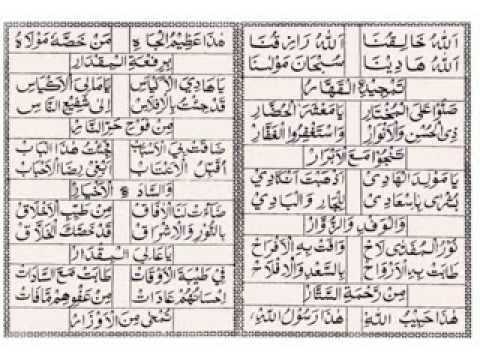 اَللهُ خَالِقُنَا اَللهُ رَازِقُنَا
اَللهُ هَادِيْنَا سُبْحَانَ مَوْلٰسنَا
تَمْجِيْدَةِ الْقَهَّارْ
صَلُّوْا عَلَى الْمُخْتَارْ يَا مَعْشَرَ الْحُضَّارْ
ذِي الْحُسْنِ وَالْاَنْوَارْ وَاسْتَغْفِرُوا الْغَفَّارْ
تَنْجُوْا مَعَ الْاَبْرَارْ
يَا مَوْلِدَ الْهَادِيْ اَذْهَبْتَ اَنْكَادِيْ
بُشْرٰى بِاِسْعَادِيْ لِلْجَارِ وَالْبَادِيْ
وَالْوَفْدِ وَالزُّوَّارْ
نُوْرُ الْمُفَدّٰى لَاحْ وَافَتْ بِهِ الْاَفْرَاحْ
طَابَتْ بِهِ الْاَرْوَاحْ بِالسَّعْدِ وَالْاِفْلَاحْ
مِنْ رَحْمَةِ السَّتَّارْ
هٰذَا حَبِيْبُ اللهْ هٰذَا رَسُوْلُ اللهْ
هٰذَا عَظِيْمُ الْجَاهْ مَنْ خَصَّهُ مَوْلَاهْ
بِرِفْعَةِ الْمِقْدَارْ
يَا هَادِيَ الْاَكْيَاسْ يَا مَالِيَ الْاَكْيَاسْ
قَدْ جِئْتُ بِالْاِفْلَاسْ اِلٰى شَفِيْعِ النَّاسْ
مِنْ فَوْحِ حَرِّ النَّارْ
ضَاقَتْ بِيَ الْاَسْبَابْ فَجِئْتُ هٰذَا الْبَابْ
اُقَبِّلُ الْاَعْتَابْ اَبْغِيْ رِضَا الْاَحْبَابْ
وَالسَّادَةِ الْاَخْيَارْ
ضَاءَتْ بِنَا الْاٰفَاقْ مِنْ طَيِّبِ الْاَخْلَاقْ
بِالنُّوْرِ وَالْاِشْرَاقْ قَدْ خَصَّكَ الْخَلَّاقْ
يَا عَالِيَ الْمِقْدَارْ
فِيْ طَيْبَةَ الْاَوْقَاتْ طَابَتْ مَعَ السَّادَاتْ
اِحْسَانُهُمْ عَادَاتْ مِنْ عَفْوِهِمْ مَا فَاتْ
تُمْحٰى مِنَ الْاَوْزَارْ